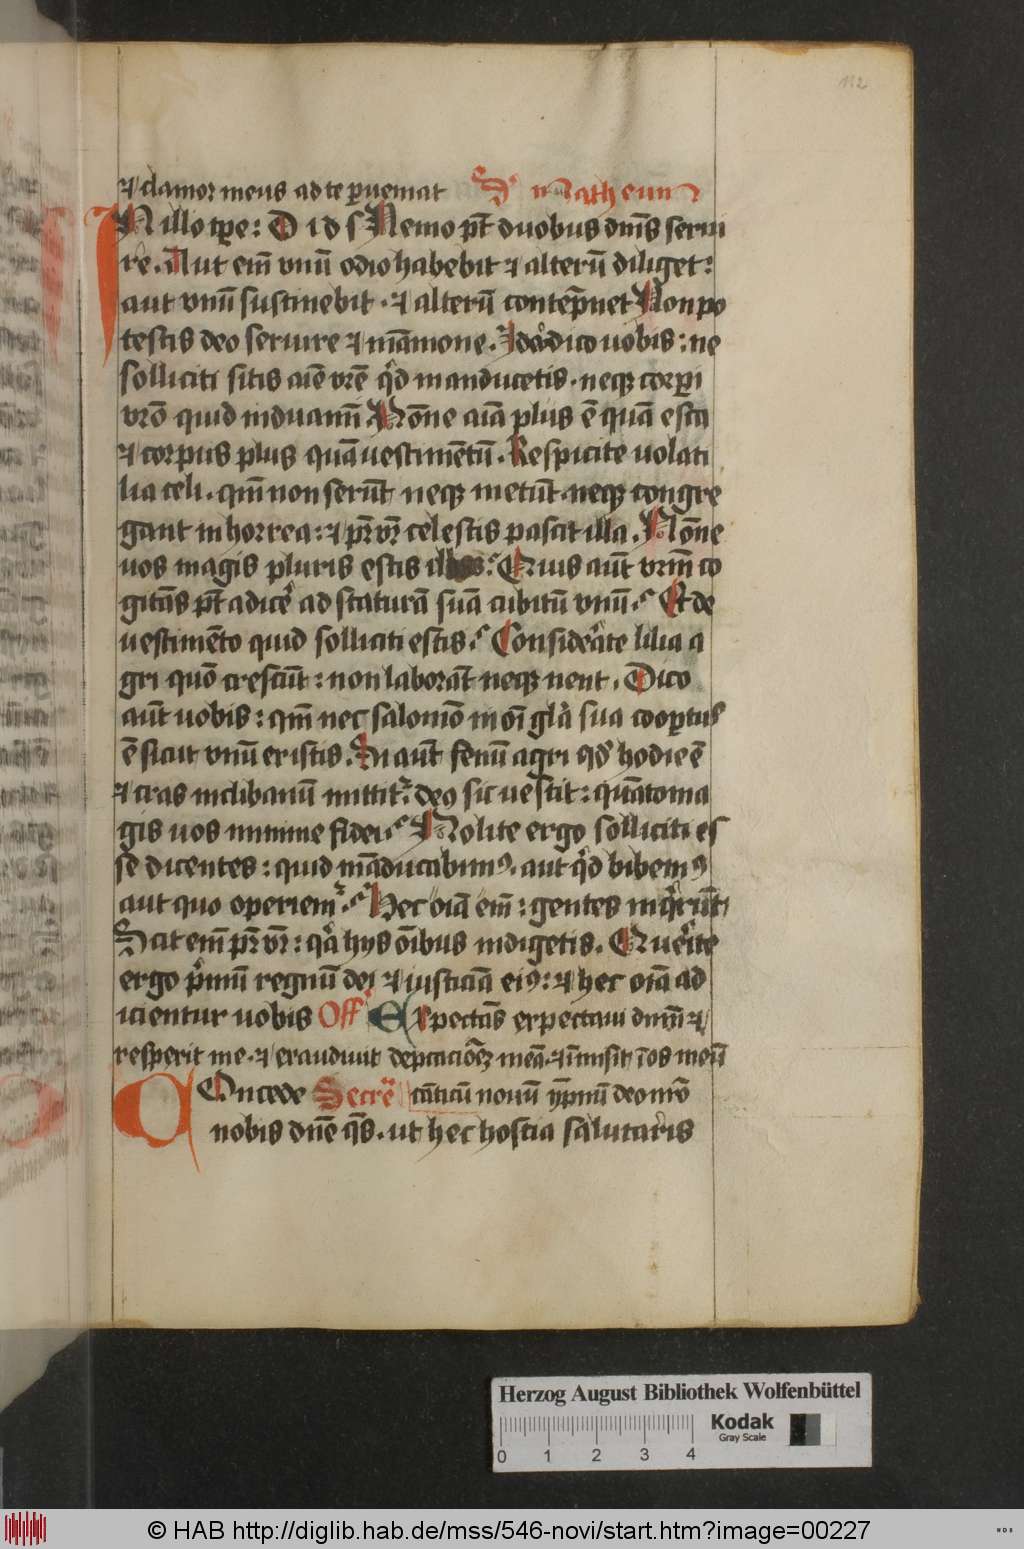 112
⁊ clamor meus ad te ꝑueniat S. matheum
IN illo tꝑe: D i d s Nemo pt̄ duobus dnīs serui
re. Aut em̄ vnū odio habebit ⁊ alterū diliget:
aut vnū sustinebit · ⁊ alterū contēpnet Non po
testis deo seruire ⁊ māmone. Ido dico uobis: ne
solliciti sitis aīe vrē qͥd manducetis · neqꝫ corꝑi
vrō quid induamī Nōne aīa plus ē quā esca
⁊ corpus plus quā uestimētū. Respicite uolati
lia celi. qm̄ non serūt neqꝫ metūt · neqꝫ congre
gant in horrea: ⁊ pr̄ vr̄ celestis pascit illa. Nōne
uos magis pluris estis illis: Quis aūt vrm̄ co
gitās pt̄ adicē ad staturā suā cubitū vnū Et de
uestimēto quid solliciti estis Consideͣte lilia a
gri quō crescūt: non laborāt neqꝫ nent. Dico
aūt uobis: qm̄ nec salomō in oī glā sua cooptus
ē sicut vnū ex istis. Si aūt fenū agri qd̛ hodie ē
⁊ cras in clibanū mittit᷑ deꝰ sic uestit: quātoma
gis uos minime fidei Nolite ergo solliciti es
se dicentes: quid māducabimꝰ. aut qͥd bibemꝰ
aut quo operiem᷑ Hec oīa em̄: gentes inqͥrūt
Scit em̄ pr̄ vr̄: qͣ hys oībus indigetis. Querͥte
ergo pͥmū regnū dei ⁊ iusticiā eiꝰ: ⁊ hec oīa ad
icientur uobis Off Expectās expectaui dnm̄ ⁊
respexit me · ⁊ exaudiuit dep̄caciōeꝫ meā · ⁊ īmisit ī os meū
COncede Secrē cāticū nouū ypnū deo nrō
nobis dn̄e qs̄. ut hec hostia salutaris
Herzog August Bibliothek Wolfenbüttel
Kodak
Gray Scale
0 1 2 3 4
© HAB http://diglib.hab.de/mss/546-novi/start.htm?image=00227